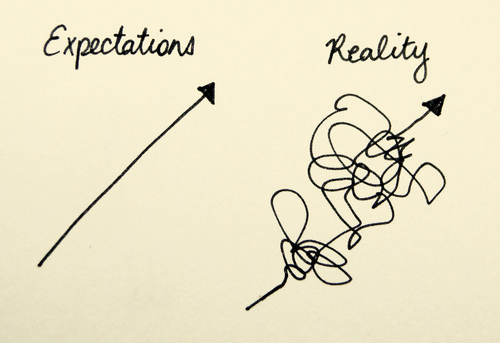 Expectations
Reality